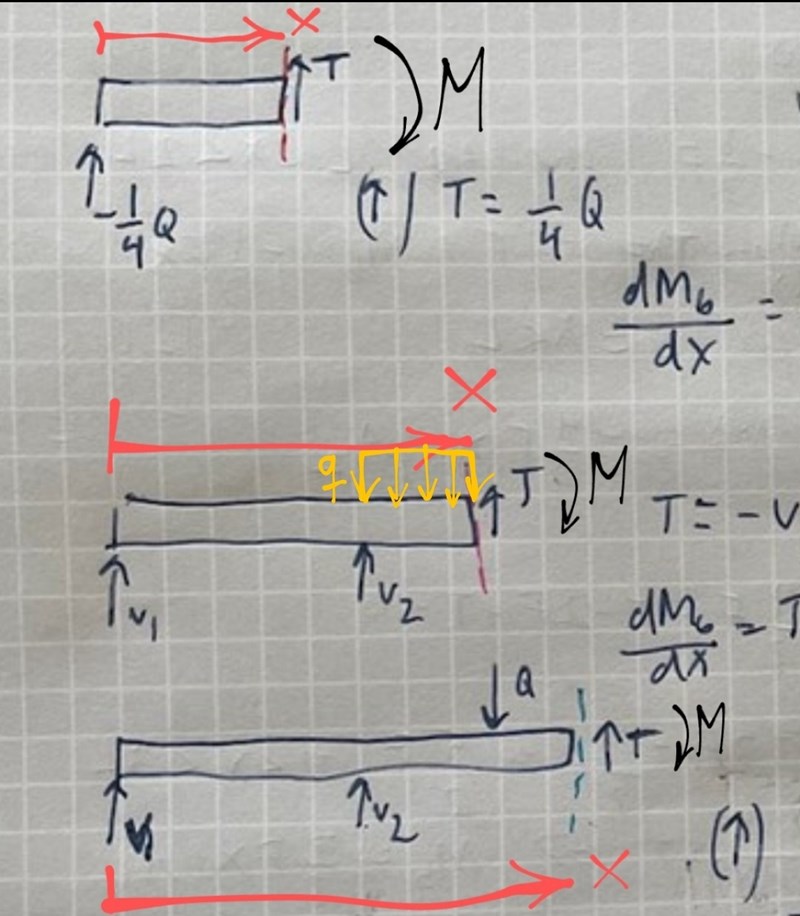 x
T M
-1/4 Q
(↑) T = 1/4 Q
dM_b/dx =
x
q
T M
T = -V
V_1 V_2
dM_b/dx = T
Q
T M
V_2
(↑)
x